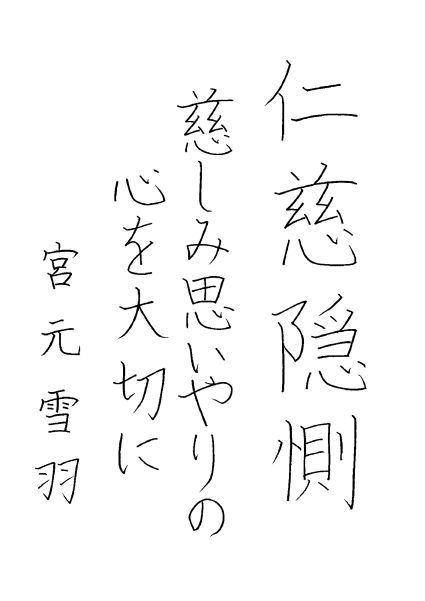 仁慈隠惻
慈しみ思いやりの
心を大切に
宮元雪羽